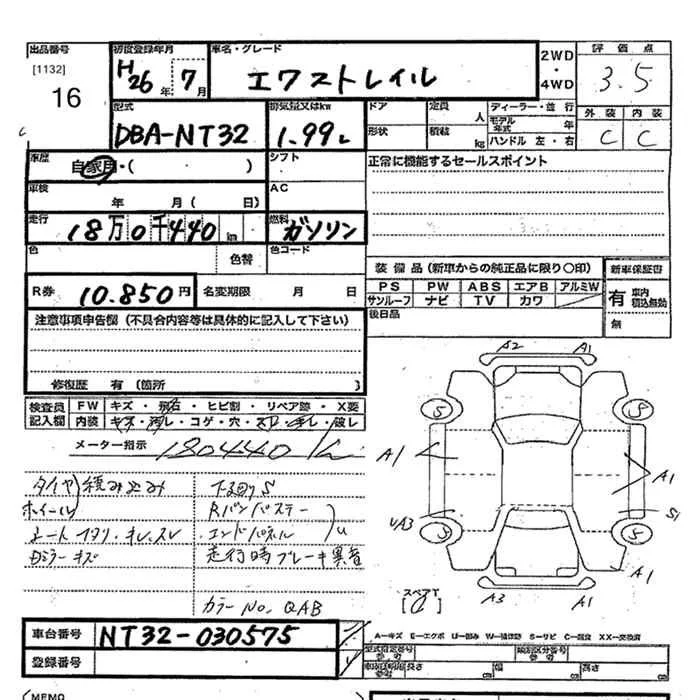 出品番号 初度登録年月 車名・グレード 2WD・4WD 評価点
[1132]
16 H26年7月 エクストレイル 3.5
型式 排気量又はkw ドア 定員 人 ディーラー・並行 外装 内装
DBA-NT32 1.99L 形状 積載 kg モデル年式 年 C C
ハンドル 左・右
車歴 自家用・( ・ ) シフト 正常に機能するセールスポイント
車検 年 月( 日) AC
走行 18万0千440km 燃料 ガソリン
色 色替 色コード
装備品(新車からの純正品に限り○印) 新車保証書
R券 10.850円 名変期限 月 日 PS PW ABS エアB アルミW 有 車内積込無効
サンルーフ ナビ TV カワ
注意事項申告欄(不具合内容等は具体的に記入して下さい) 後日品 無
修復歴 有(箇所 )
検査員記入欄 FW キズ・飛石・ヒビ割・リペア跡・X要
内装 キズ・汚レ・コゲ・穴・スレ・キレ・破レ
メーター指示 180440
A2 A1
S S
A1 A1
S1
S S
A1
A3 A1
タイヤ 積み込み 下廻りS
ホイール
シートヘタリ・キレ、スレ エンドパネル U
走行時ブレーキ異音
スペアT
カラーNo. QAB
車台番号 NT32-030575
A―キズ E―エクボ U―凹み W―補修跡 S―サビ C―腐食 XX―交換済
登録番号 型式指定番号 参考 類別区分番号 参考
長さ cm 幅 cm 高さ cm
(MEMO